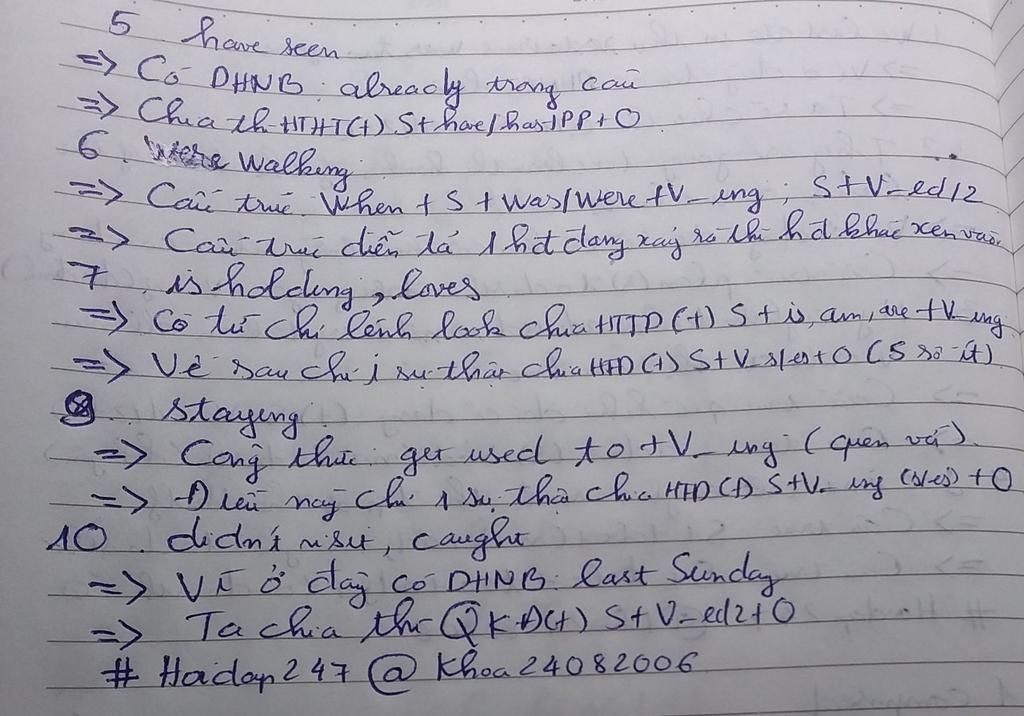 5 have seen
=> Có DHNB: already trong câu
=> Chia thì HTHT(+) S+have/has+PP+O
6. Were Walking
=> Cấu trúc When + S + Was/Were +V_ing, S+V_ed/2
=> Cấu trúc diễn tả 1 hđ đang xảy ra thì hđ khác xen vào.
7. is holding, loves
=> Có từ chỉ lệnh look chia HTTD (+) S + is, am, are +V_ing
=> Vế sau chỉ 1 sự thật chia HTD (+) S+V_s/es+O (S số ít)
8. staying
=> Công thức: get used to +V_ing (quen với).
=> Điều này chỉ 1 sự thật chia HTD(+) S+V_ing (s/es) +O
10. didn't visit, caught
=> Vì ở đây có DHNB: last Sunday
=> Ta chia thì QKĐ(+) S+V_ed/2+O
# Hoidap247 @ Khoa24082006